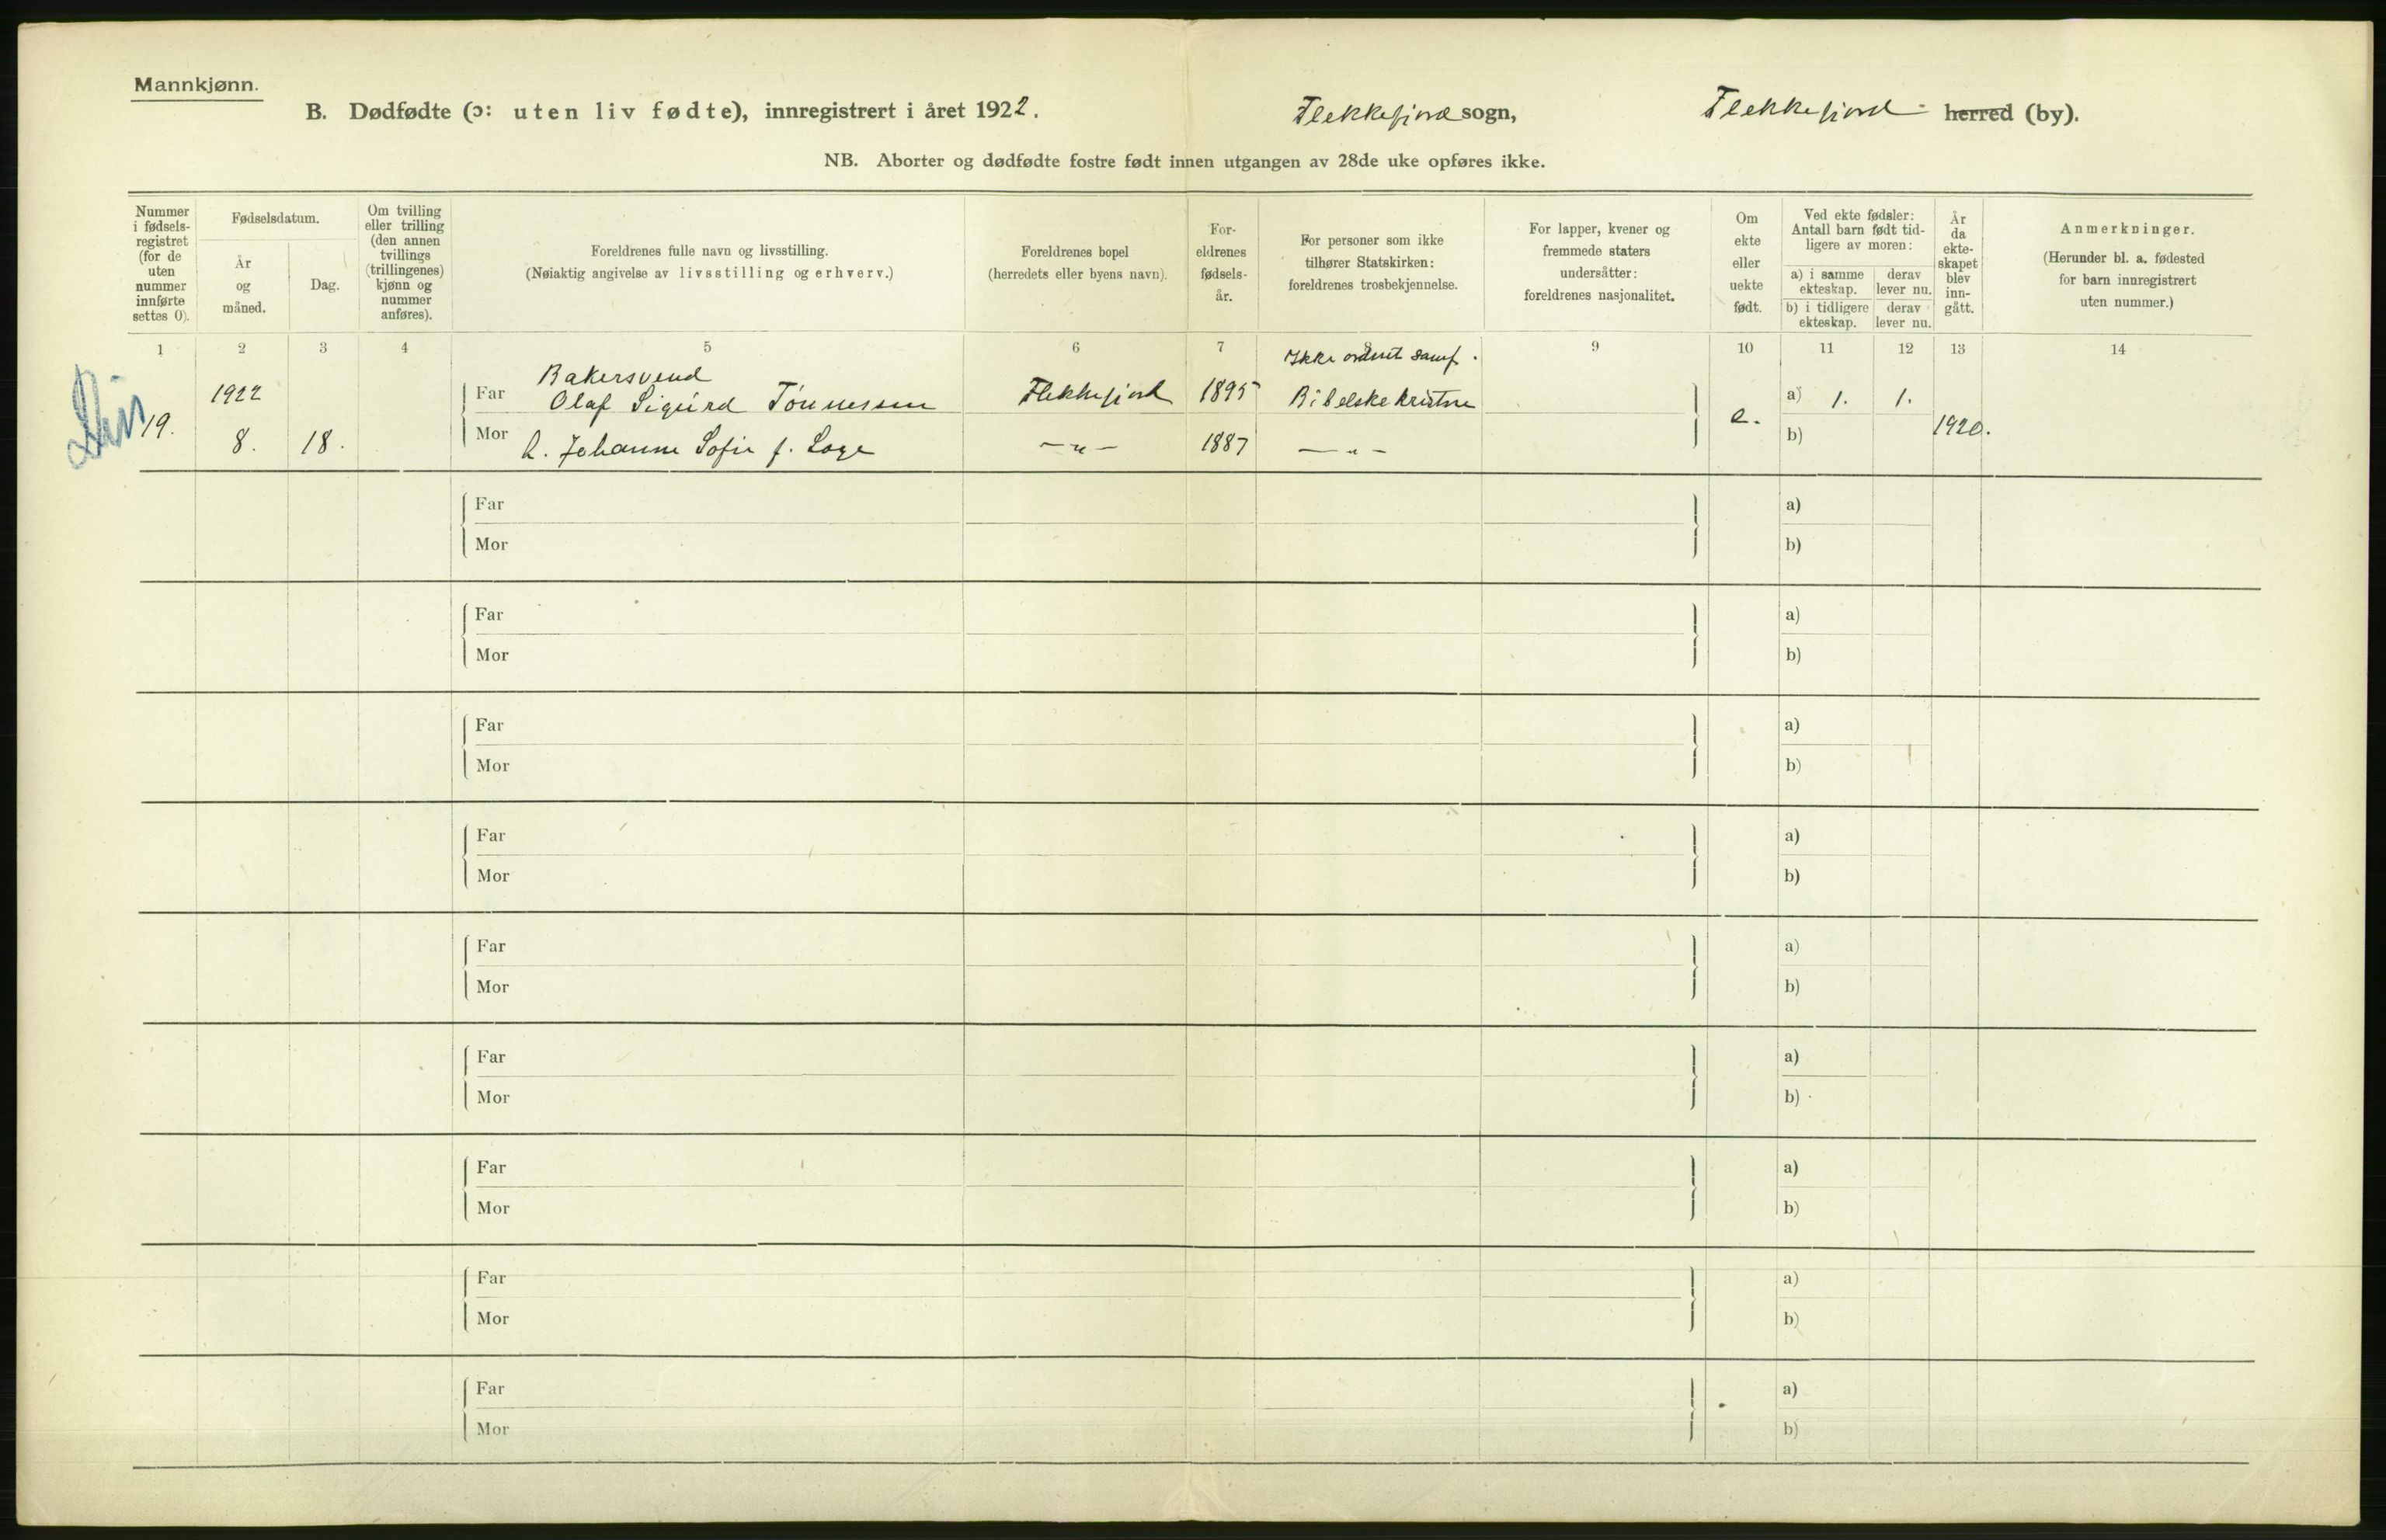 Mannkjønn.
B. Dødfødte (ɔ: uten liv fødte), innregistrert i året 1922. Flekkefjord sogn, Flekkefjord herred (by).
NB. Aborter og dødfødte fostre født innen utgangen av 28de uke opføres ikke.
Nummer i fødsels-registret (for de uten nummer innførte settes 0).
Fødselsdatum.
År og måned.
Dag.
Om tvilling eller trilling (den annen tvillings (trillingenes) kjønn og nummer anføres).
Foreldrenes fulle navn og livsstilling.
(Nøiaktig angivelse av livsstilling og erhverv.)
Foreldrenes bopel
(herredets eller byens navn).
For-eldrenes fødsels-år.
For personer som ikke tilhører Statskirken: foreldrenes trosbekjennelse.
For lapper, kvener og fremmede staters undersåtter: foreldrenes nasjonalitet.
Om ekte eller uekte født.
Ved ekte fødsler: Antall barn født tid-ligere av moren:
a) i samme ekteskap.
derav lever nu.
b) i tidligere ekteskap.
derav lever nu.
År da ekte-skapet blev inn-gått.
Anmerkninger.
(Herunder bl. a. fødested for barn innregistrert uten nummer.)
1 2 3 4 5 6 7 8 9 10 11 12 13 14
Ikke ordnet samf.
Bakersvend
1922 Far Olaf Sigurd Tønnessen Flekkefjord 1895 Bibelske kristne a) 1. 1.
19. e. 1920.
8. 18. Mor h. Johanne Sofie f. Loge —"— 1887 —"— b)
Far a)
Mor b)
Far a)
Mor b)
Far a)
Mor b)
Far a)
Mor b)
Far a)
Mor b)
Far a)
Mor b)
Far a)
Mor b)
Far a)
Mor b)
Far a)
Mor b)